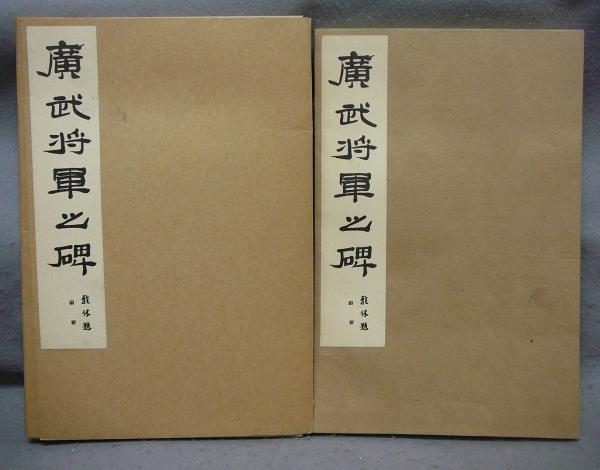 廣武将軍之碑
廣武将軍之碑